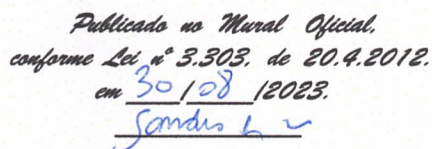 Publicado no Mural Oficial.
conforme Lei nº 3.303, de 20.9.2012.
em 30/08/2023.